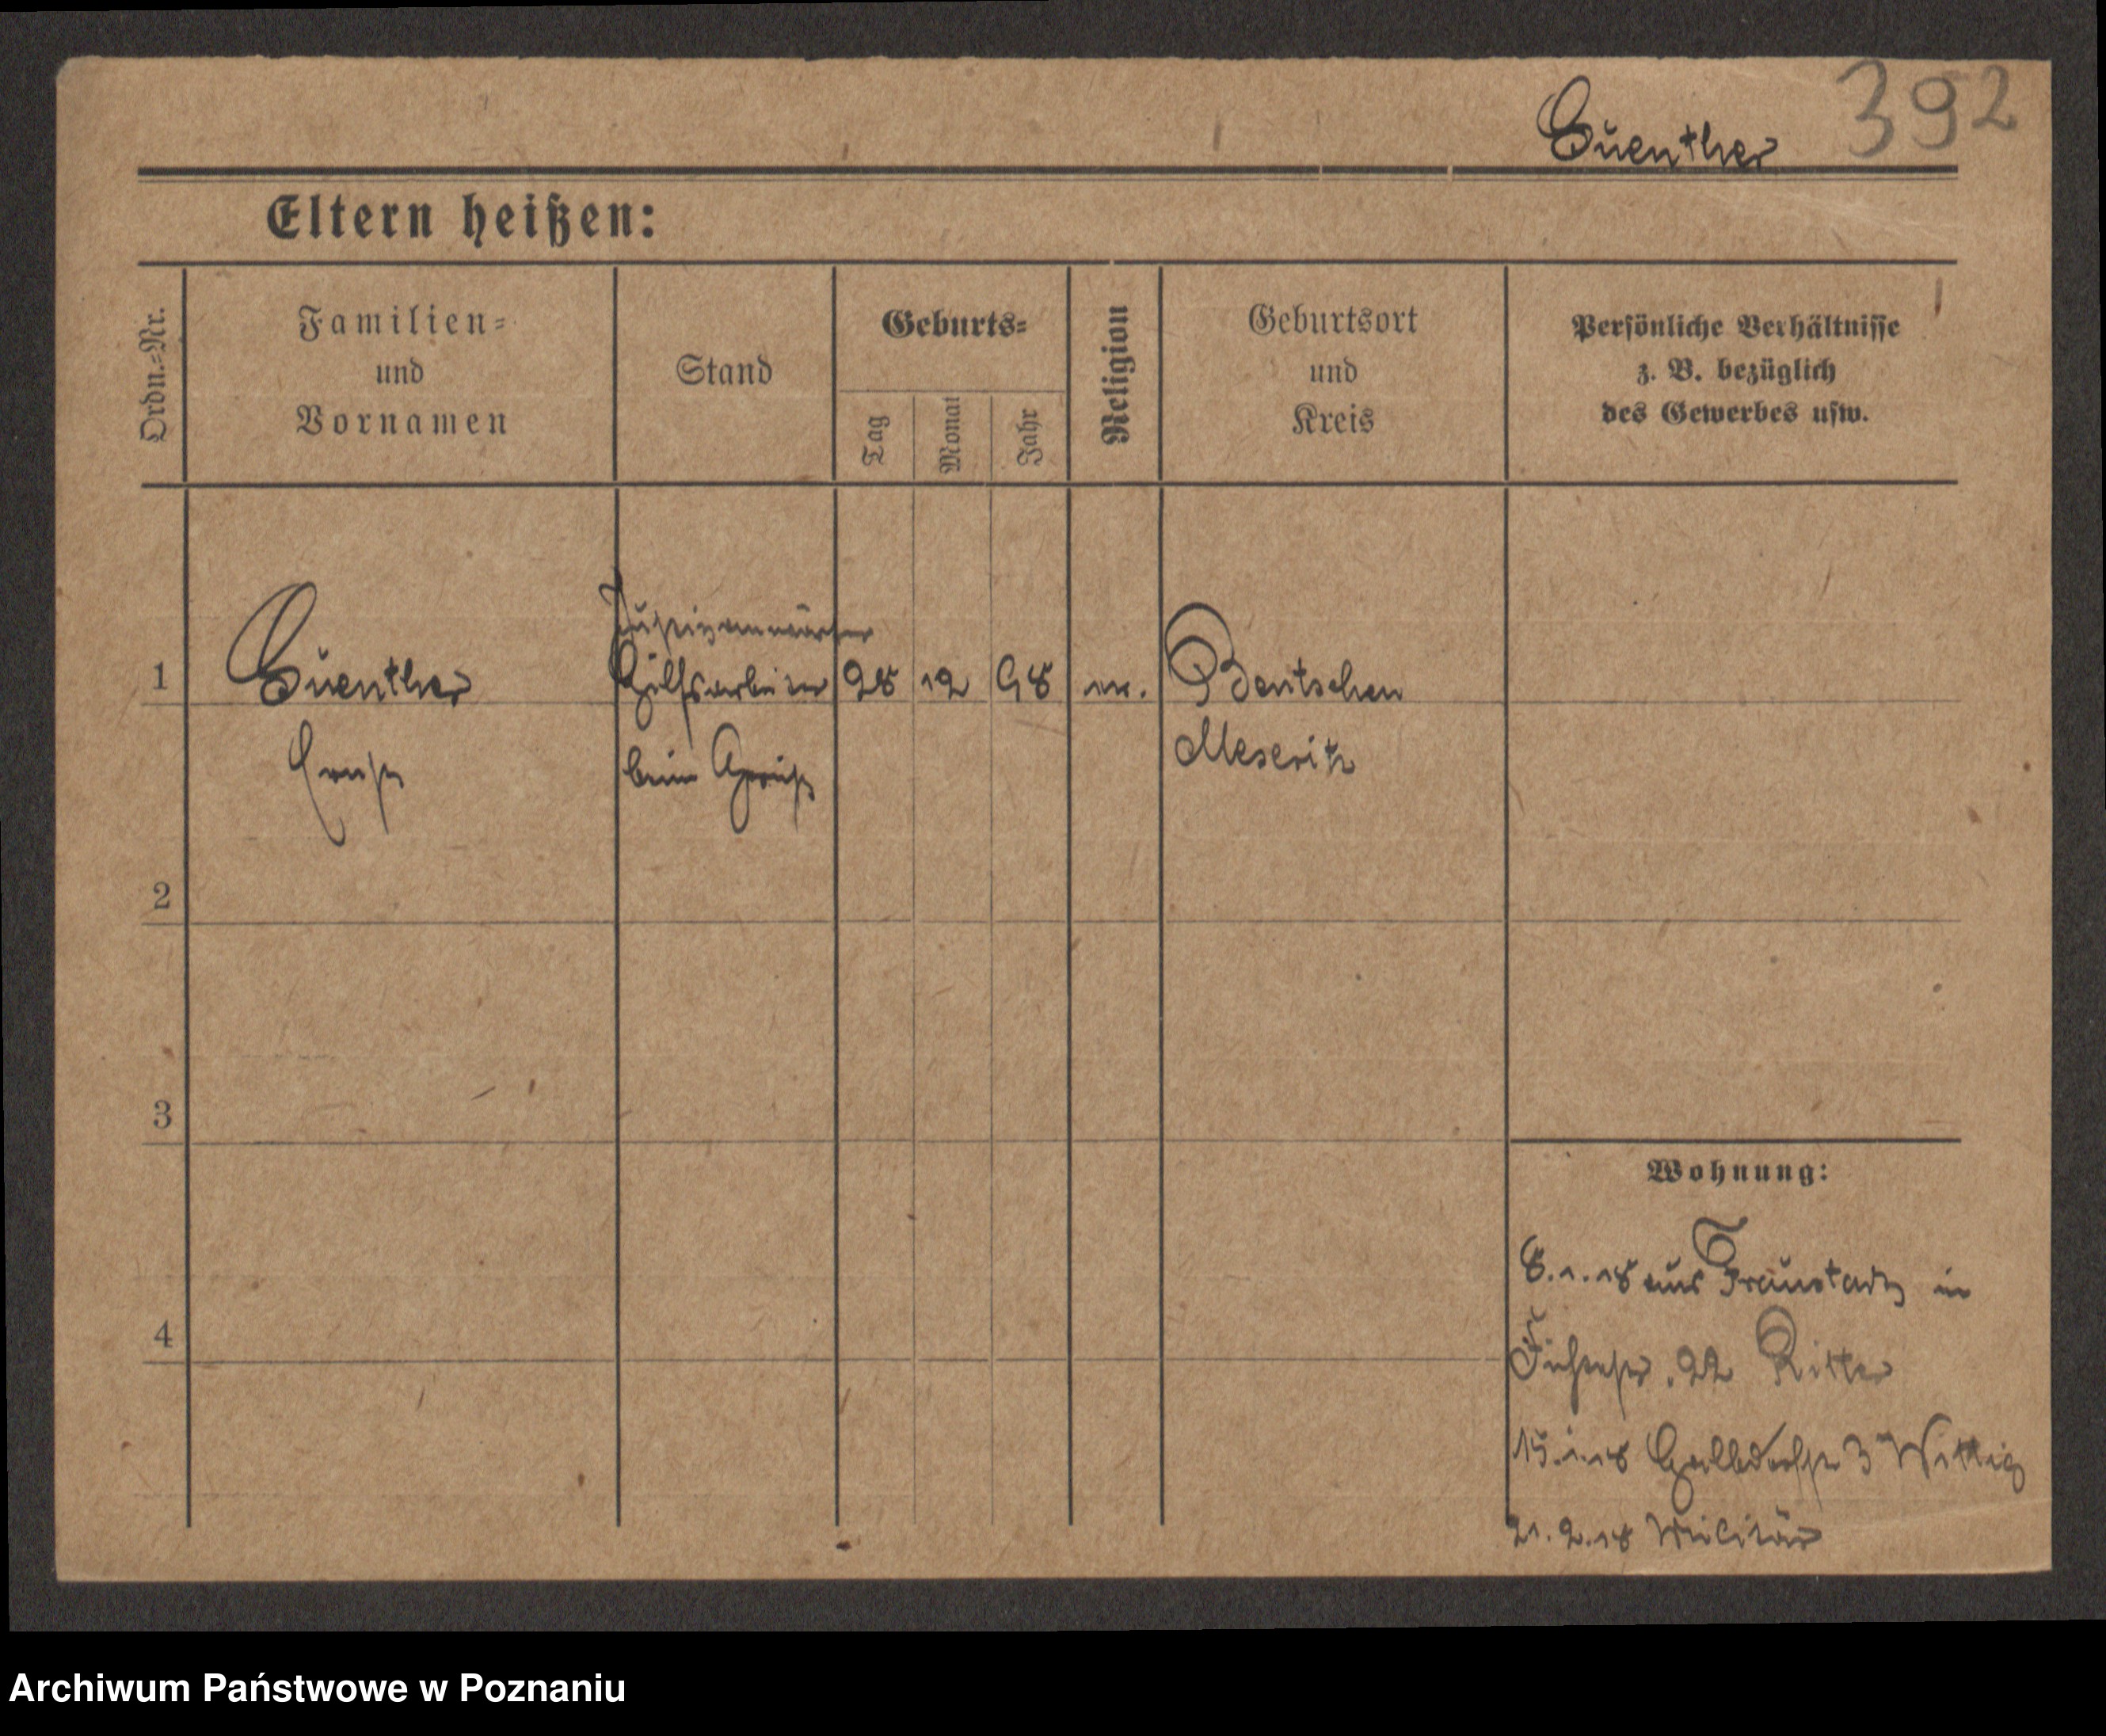 392
Guenther
Eltern heißen:
Ordn.-Nr.
Familien-
und
Vornamen
Stand
Geburts-
Tag
Monat
Jahr
Religion
Geburtsort
und
Kreis
Persönliche Verhältnisse
z. B. bezüglich
des Gewerbes usw.
Justizanwärter
1 Guenther Hülfsarbeiter 28 12 98 Bentschen
Ernst beim Gericht Meseritz
2
3
4
Wohnung:
8.1.18 aus Fraustadt in
22 Ritter
15.1.18 3 Wittig
21.2.18 Militär
Archiwum Państwowe w Poznaniu